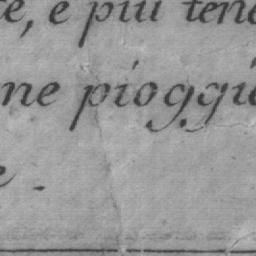 e, e più tene
ne pioggie
e.